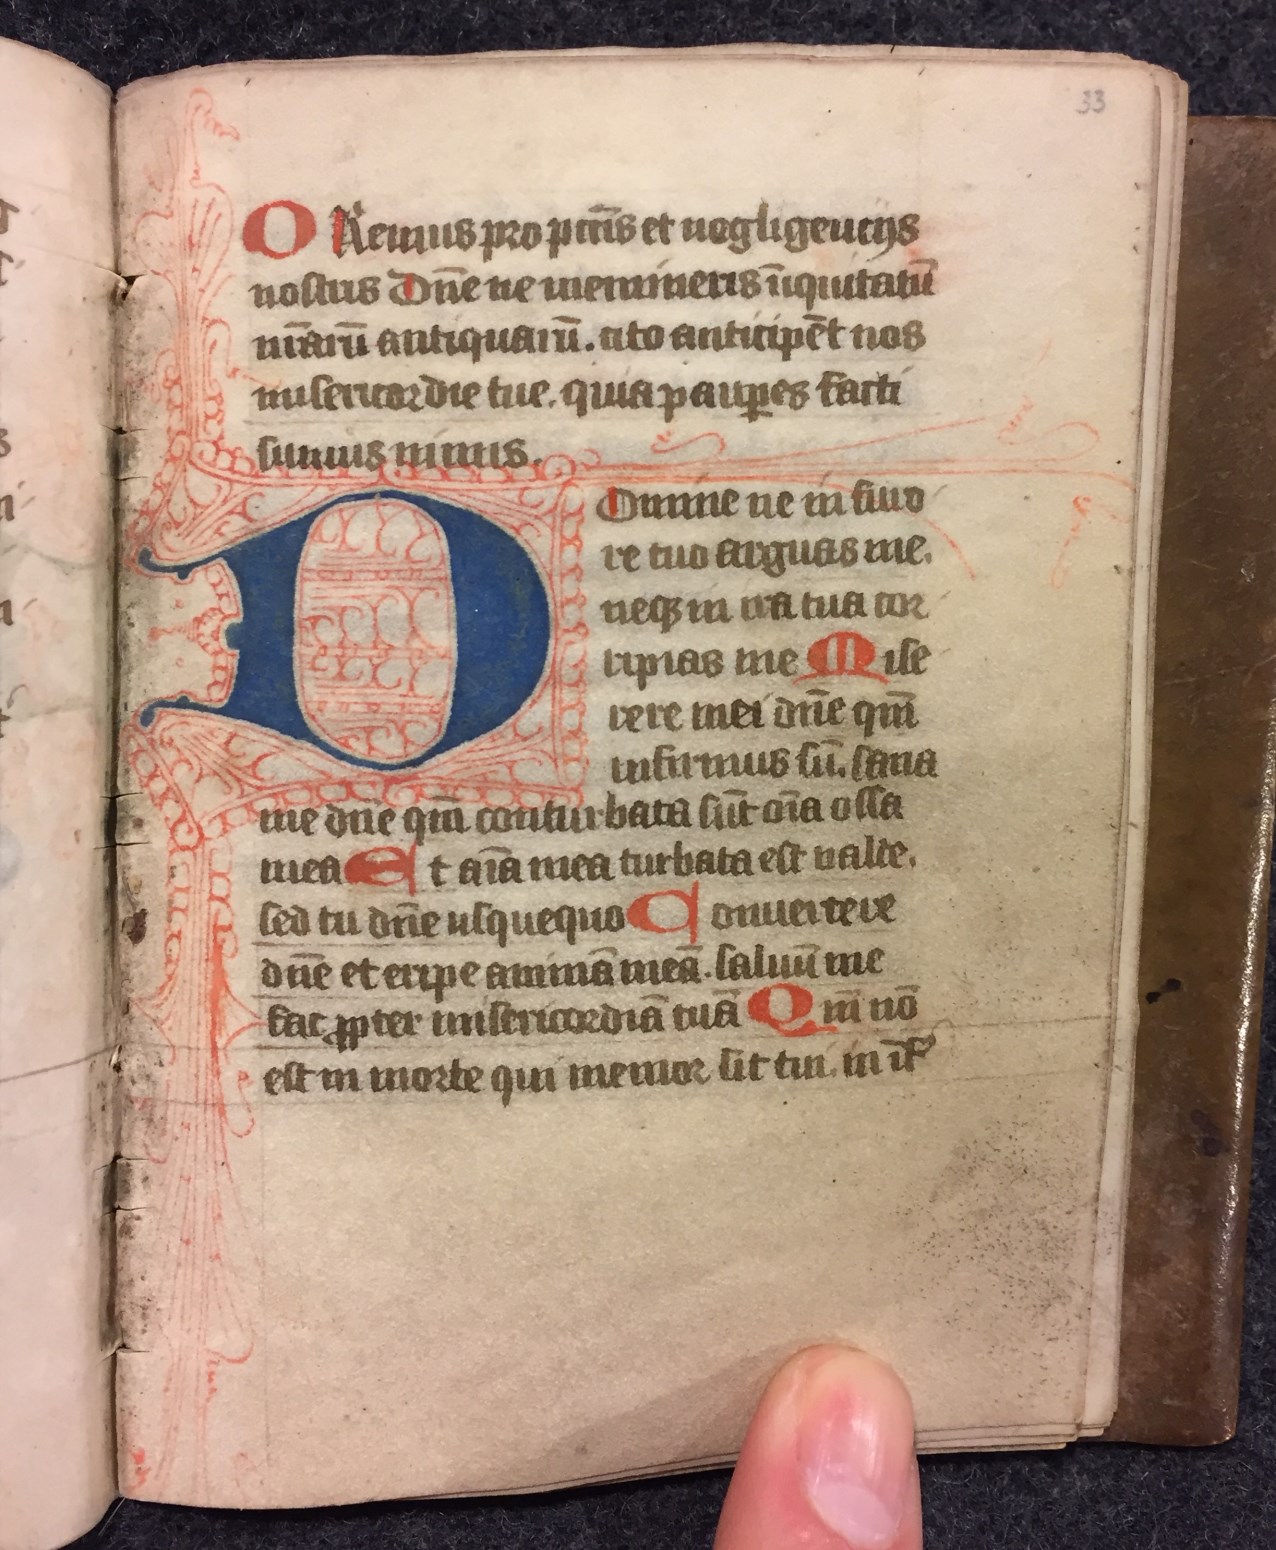 33
ORemus pro pctīs et negligencijs
nostris Dn̄e ne memineris īiquitatū
nr̄arū antiquarū. cito anticipēt nos
misericordie tue. quia pauꝑes facti
sumus nimis.
Domine ne in furo
re tuo arguas me.
neqꝫ in ira tua cor
ripias me Mise
rere mei dn̄e qm̄
infirmus sū. sana
me dn̄e qm̄ conturbata sūt oīa ossa
mea Et aīa mea turbata est valde.
sed tu dn̄e usquequo Conuertere
dn̄e et eripe animā meā. saluū me
fac ꝓpter misericordiā tuā Qm̄ nō
est in morte qui memor sit tui. in īf